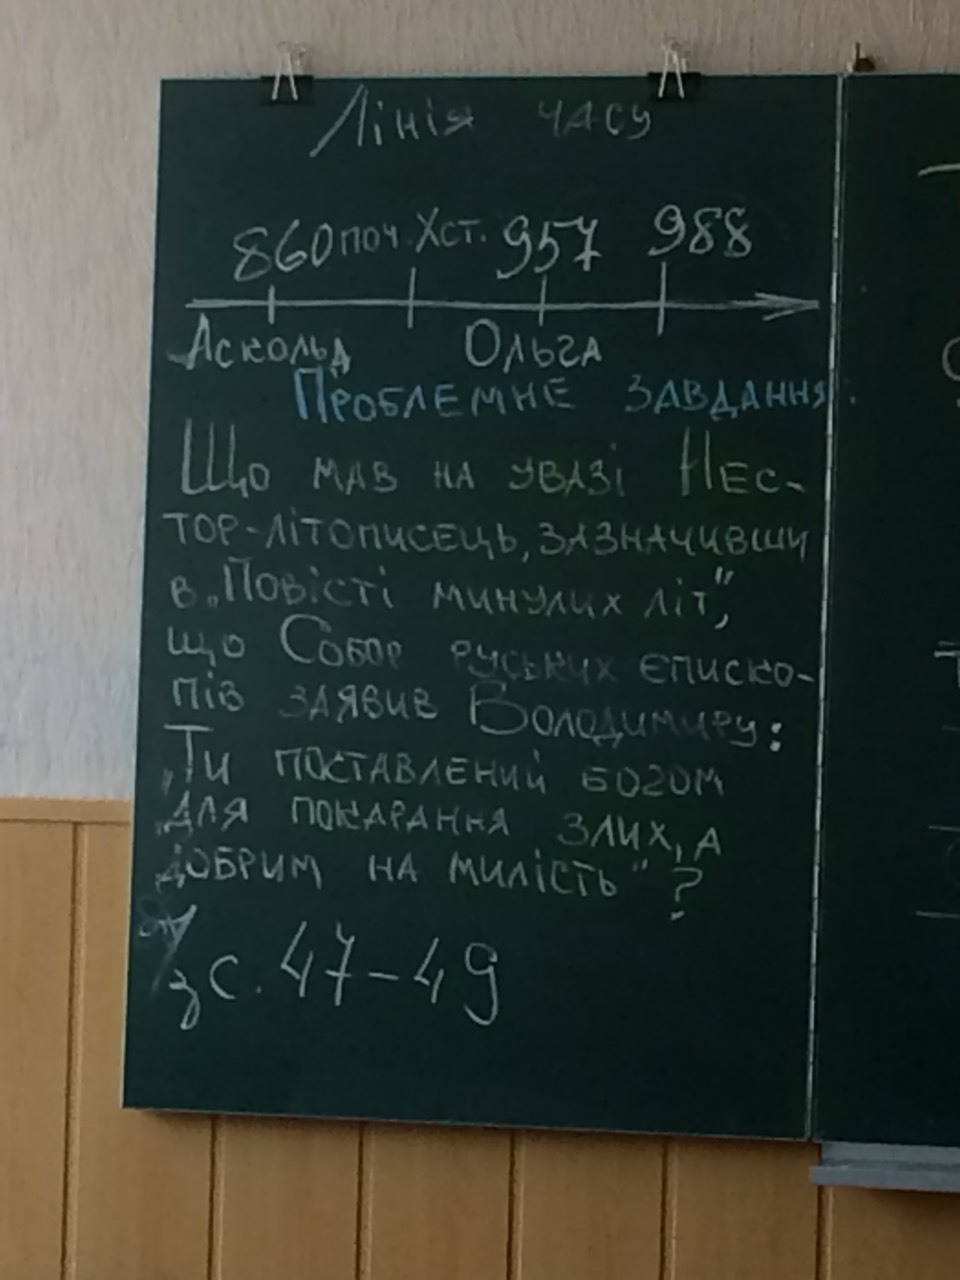 Лінія часу
860 поч. Х ст. 957 988
Аскольд Ольга
Проблемне завдання.
Що мав на увазі Нес-
тор-літописець, зазначивши
в „Повісті минулих літ",
що Собор руських єписко-
пів заявив Володимиру:
„Ти поставлений богом
для покарання злих, а
добрим на милість"?
д/з с. 47-49